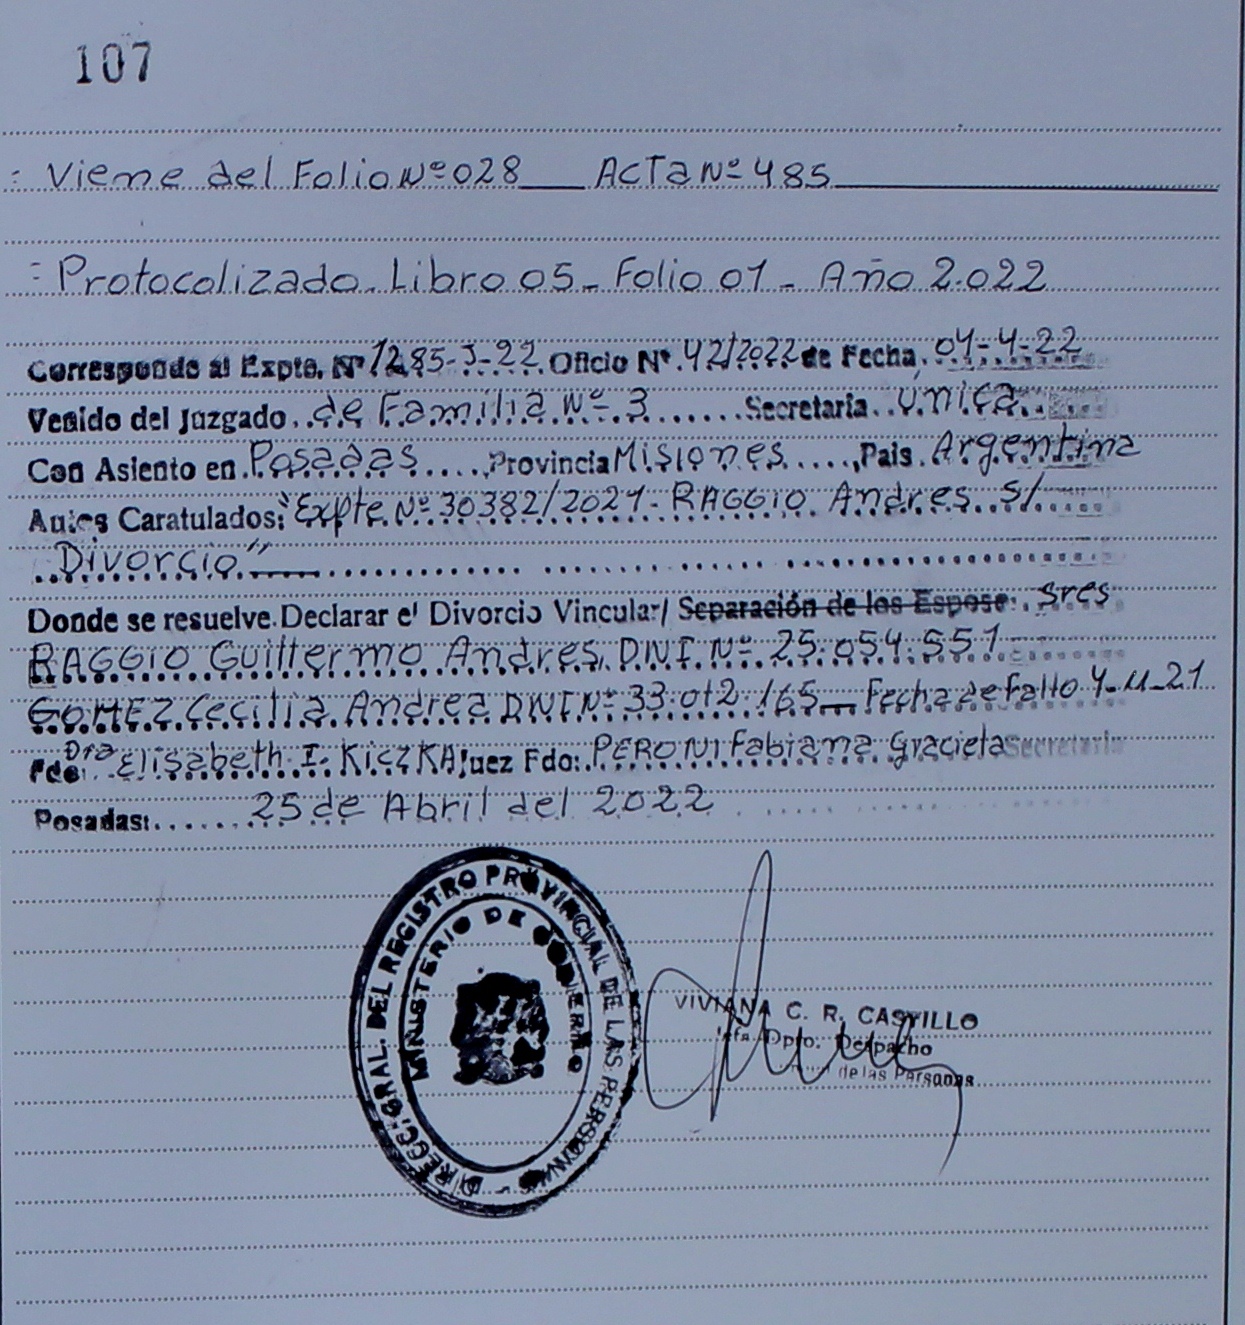 107
: Viene del Folio Nº 028 ___ ACTA Nº 485
: Protocolizado. Libro 05 - Folio 01 - Año 2.022
Corresponde al Expte. Nº 1285-J-22. Oficio Nº 42/2022 de Fecha 04-4-22
Venido del Juzgado de Familia Nº 3 Secretaria Única
Con Asiento en Posadas, Provincia Misiones, Pais Argentina
Autos Caratulados: "Expte Nº 30382/2021- RAGGIO Andres S/
Divorcio"
Donde se resuelve Declarar el Divorcio Vincular/ Separación de los Espose: sres
RAGGIO Guillermo Andres DNI Nº 25.054.551
GOMEZ Cecilia Andrea DNI Nº 33.012.165 Fecha de Fallo 4-11-21
Fdo: Dra Elisabeth I. KICZKA Juez Fdo: PERONI Fabiana Graciela Secretaria
Posadas: 25 de Abril del 2022
DIRECC. GRAL. DEL REGISTRO PROVINCIAL DE LAS PERSONAS
MINISTERIO DE GOBIERNO
VIVIANA C. R. CASTILLO
Jefa Dpto. Despacho
de las Personas